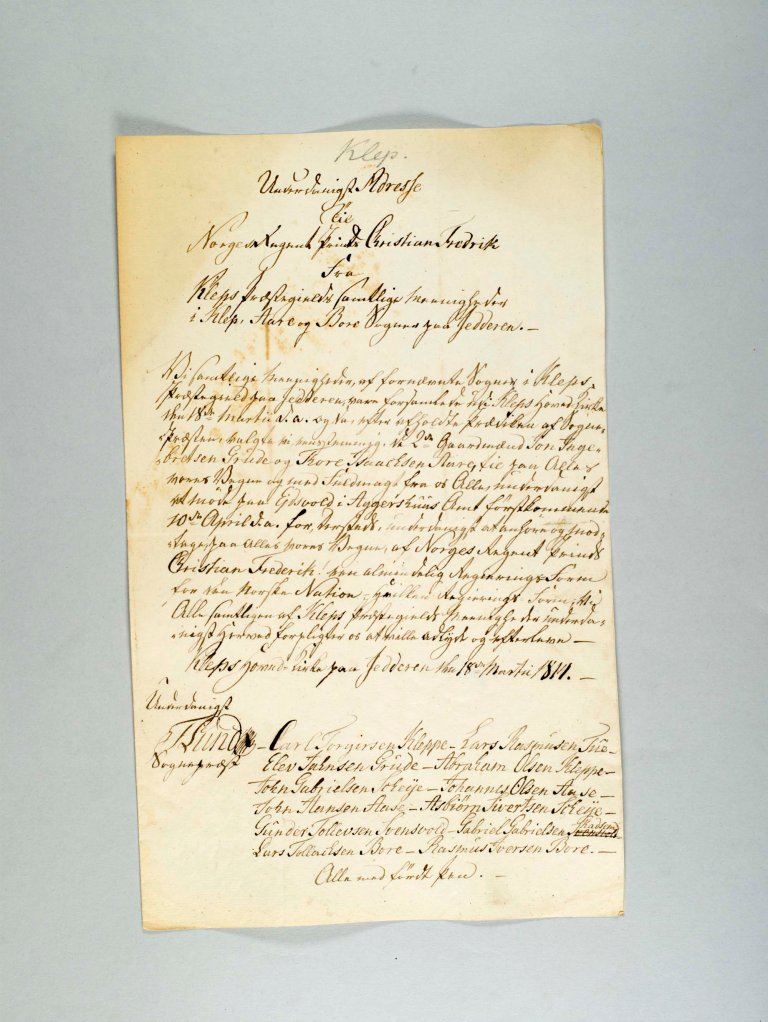 Klep.
Underdanigst Adresse
Til
Norges Regent Prinds Christian Fredrik
Fra
Kleps Præstegields samtlige Meenigheder
i Klep, Aare og Bore Sogner paa Jedderen. —
Vi samtlige Meenigheder, af fornævnte Sogner i Kleps
Præstegield paa Jedderen, vare forsamlede udi Kleps Hoved Kirke
den 18de Martii d. a. og da, efter afholdte Prædiken af Sogne-
-Præsten, valgte vi eenstemmig, de 2de Gaardmænd Jon Inge-
-bretsen Grude og Thore Isaachsen Aare, til paa Alles
vores Vegne og med Fuldmagt fra os Alle, underdanigst
at møde paa Eidsvold i Aggershuus Amt førstkommende
10de April d. a. for, dersteds, underdanigst at anhøre og mod-
-tage, paa Alles vores Vegne, af Norges Regent Prinds
Christian Frederik! den almindelig Regierings Form
for den Norske Nation, hvilken Regierings Form, vi
Alle samtligen af Kleps Præstegields Meenigheder underda-
-nigst herved forpligter os at ville adlyde og efterleve —
Kleps Hoved-Kirke paa Jedderen den 18de Martii 1814. —
Underdanigst
Lund
Sognepræst
— Carl Torgirsen Kleppe — Lars Rasmusen Tue —
Elev Johnsen Grude — Abraham Olsen Kleppe —
John Gabrielsen Scheije — Johannes Olsen Aase —
John Hansen Aase — Asbiørn Sivertsen Scheije —
Gunder Tollevsen Svensvold — Gabriel Gabrielsen
Lars Tollachsen Bore — Rasmus Iversen Bore. —
Alle med ført Pen. —